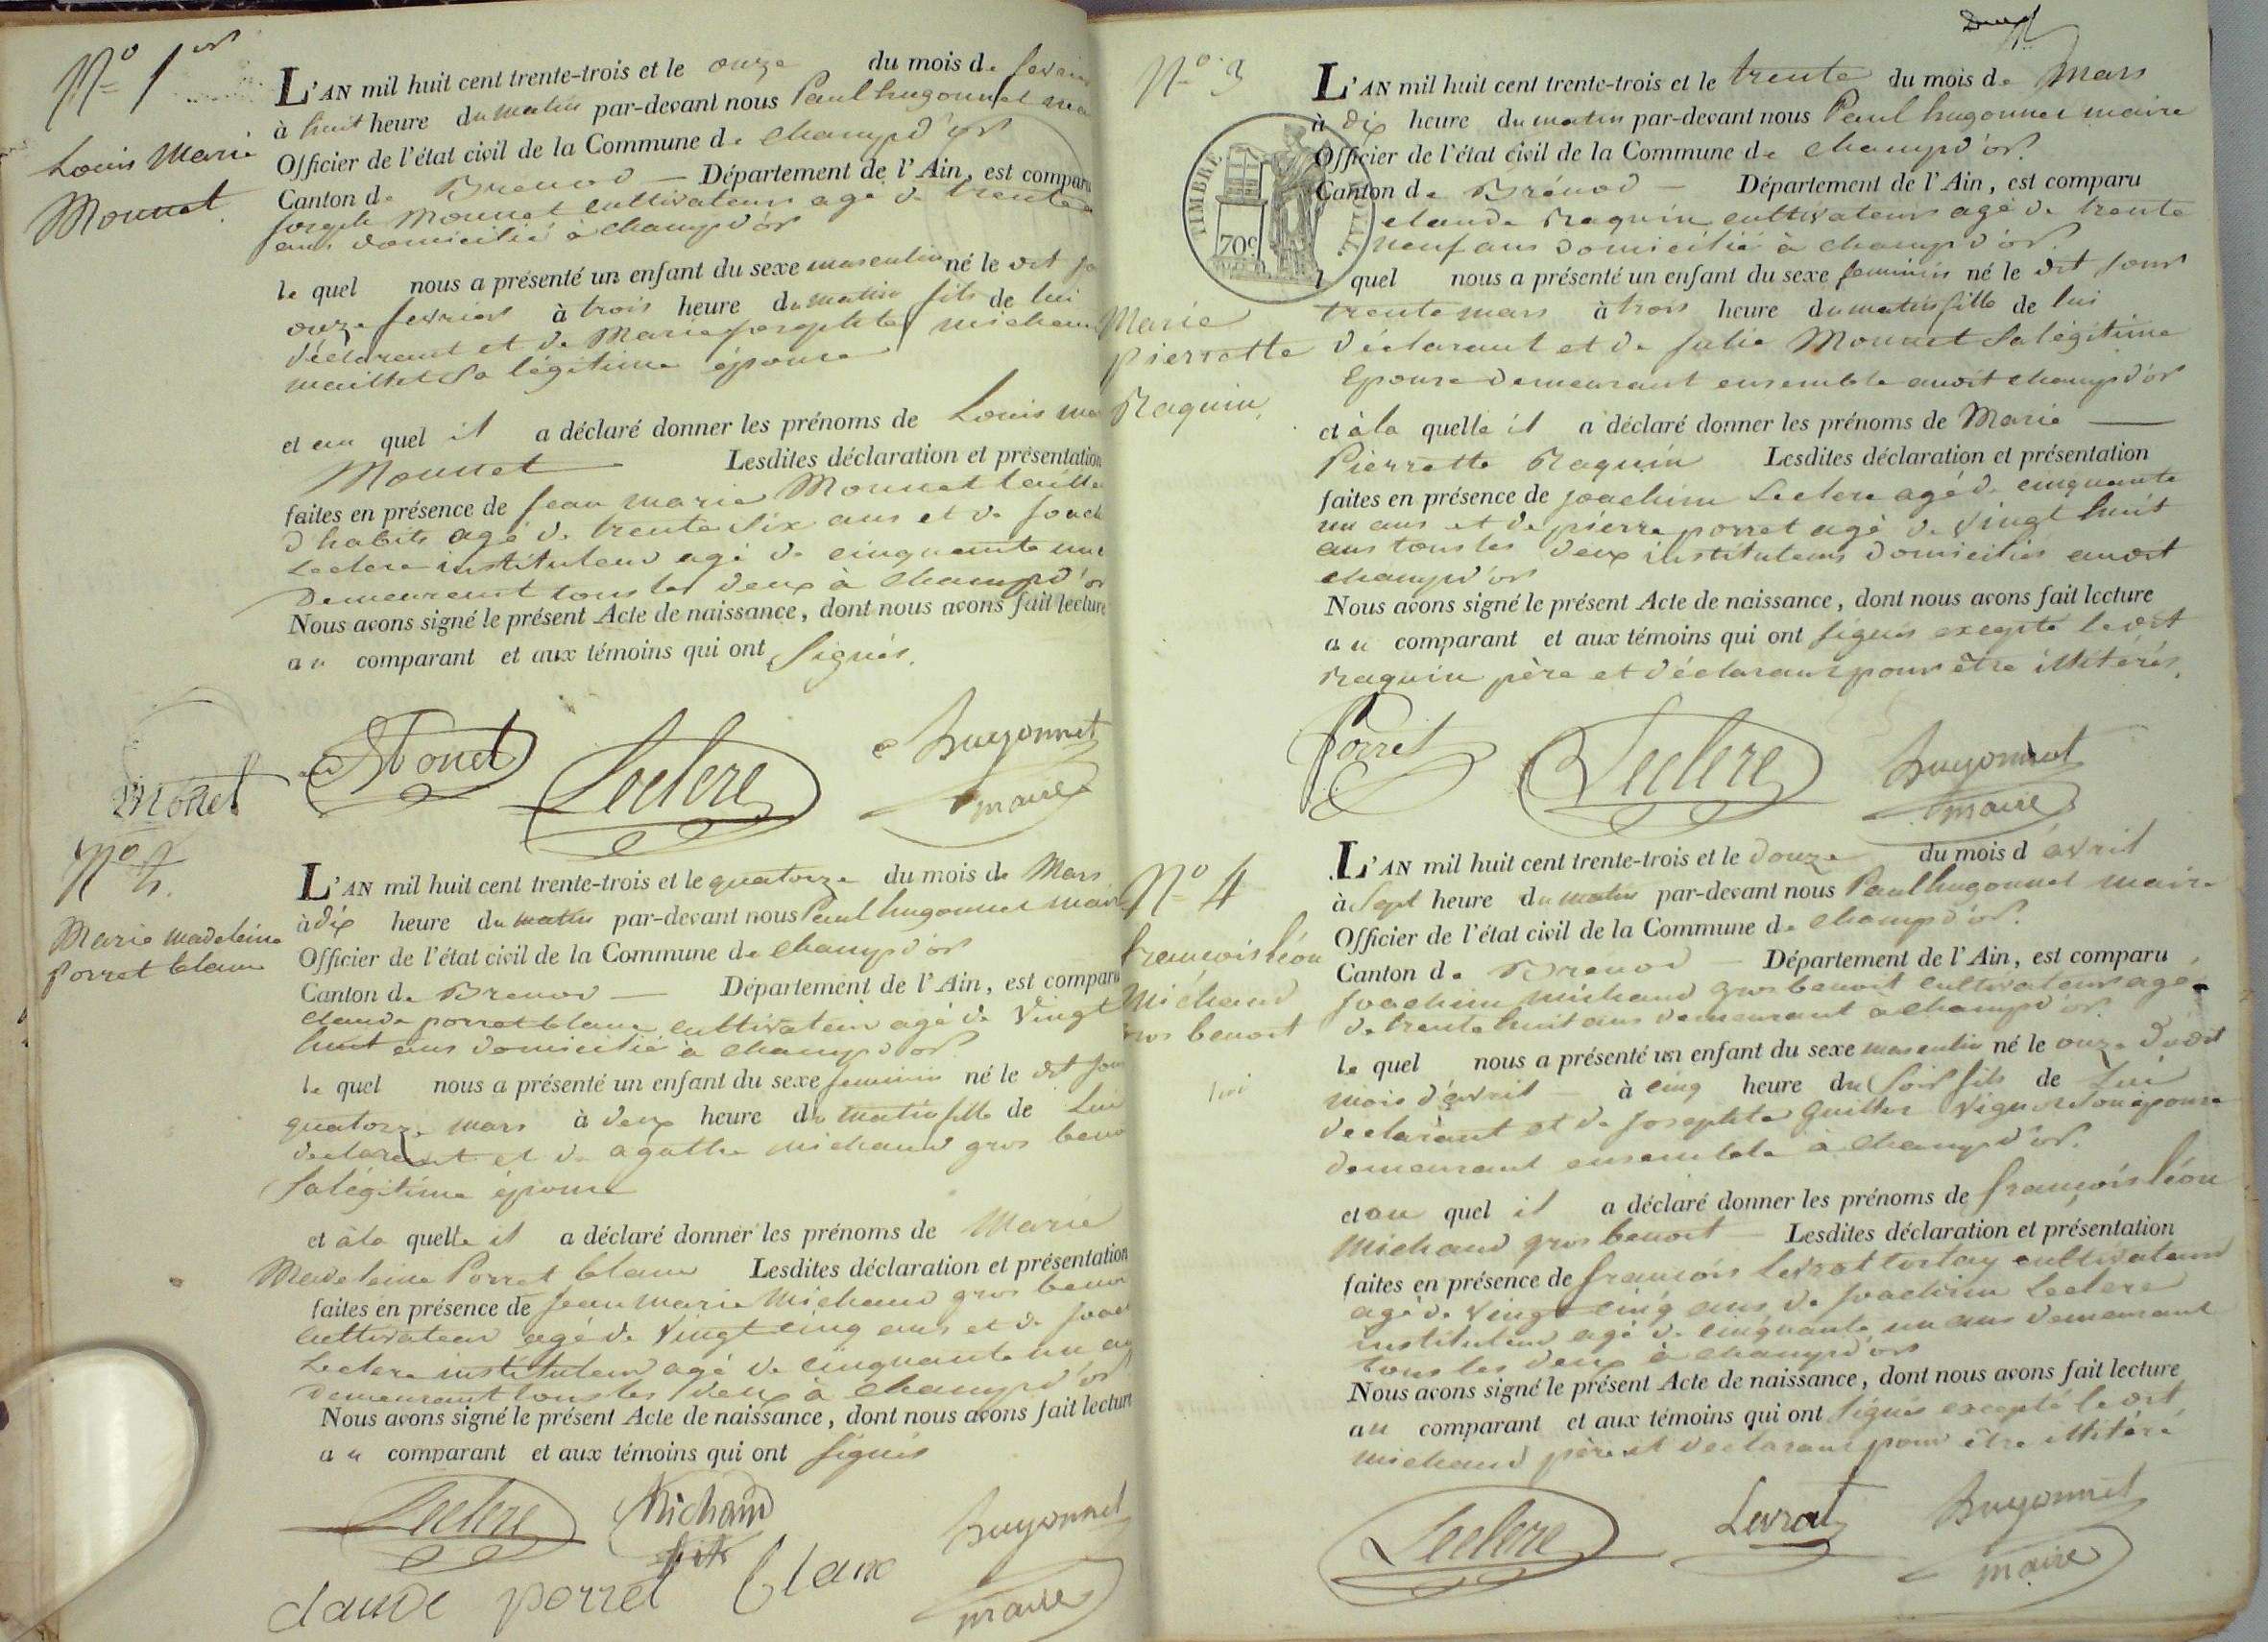 N° 1er
Louis Marie
Monnet
L'AN mil huit cent trente-trois et le onze du mois de fevrier
à huit heure du matin par-devant nous Paul hugonnet
Officier de l'état civil de la Commune de champd'or
Canton de Brenod — Département de l'Ain, est comparu
joseph Monnet cultivateur agé de trente
ans domicilié à champd'or
le quel nous a présenté un enfant du sexe masculin né le dit
onze fevrier à trois heure du matin fils de lui
déclarant et de Marie josephte michaud
maillet sa légitime épouse
et au quel il a déclaré donner les prénoms de Louis
Monnet — Lesdites déclaration et présentation
faites en présence de jean marie Monnet
d'habits agé de trente six ans et de
Leclerc instituteur agé de cinquante un
Demeurant tous les deux à champd'or
Nous avons signé le présent Acte de naissance, dont nous avons fait lecture
au comparant et aux témoins qui ont signés.
Monet
Monet
Leclerc
hugonnet
maire
N° 2.
Marie madeleine
porret blanc
L'AN mil huit cent trente-trois et le quatorze du mois de Mars
à dix heure du matin par-devant nous Paul hugonnet maire
Officier de l'état civil de la Commune de champd'or
Canton de Brenod — Département de l'Ain, est comparu
claude porret blanc cultivateur agé de vingt
huit ans domicilié à champd'or
le quel nous a présenté un enfant du sexe feminin né le dit jour
quatorze mars à deux heure du matin fille de lui
declarant et de agathe michaud gros
sa légitime épouse
et à la quelle il a déclaré donner les prénoms de Marie
Madeleine Porret blanc Lesdites déclaration et présentation
faites en présence de jean marie Michaud gros
cultivateur agé de vingt cinq ans et de
Leclerc instituteur agé de cinquante un
demeurant tous les deux à champd'or
Nous avons signé le présent Acte de naissance, dont nous avons fait lecture
au comparant et aux témoins qui ont signés
Leclerc
Michaud
hugonnet
claude porret blanc
maire
N° 3
Marie
pierrette
Raquin.
TIMBRE ROYAL.
70c
L'AN mil huit cent trente-trois et le trente du mois de Mars
à dix heure du matin par-devant nous Paul hugonnet maire
Officier de l'état civil de la Commune de champd'or.
Canton de Brénod — Département de l'Ain, est comparu
claude Raquin cultivateur agé de trente
neuf ans domicilié à champd'or.
le quel nous a présenté un enfant du sexe feminin né le dit jour
trente mars à trois heure du matin fille de lui
déclarant et de julie Monnet sa légitime
épouse demeurant ensemble audit champd'or
et à la quelle il a déclaré donner les prénoms de Marie —
Pierrette Raquin Lesdites déclaration et présentation
faites en présence de joachim Leclerc agé de cinquante
un ans et de pierre porret agé de vingt huit
ans tous les deux instituteurs domiciliés audit
champd'or
Nous avons signé le présent Acte de naissance, dont nous avons fait lecture
au comparant et aux témoins qui ont signés excepté le dit
Raquin père et déclarant pour être illitérés.
Porret
Leclerc
hugonnet
maire
N° 4
francois léon
Michaud
gros benoit
L'AN mil huit cent trente-trois et le douze du mois d'avril
à sept heure du matin par-devant nous Paul hugonnet maire
Officier de l'état civil de la Commune de champd'or.
Canton de Brenod — Département de l'Ain, est comparu
joachim michaud gros benoit cultivateur agé
de trente huit ans demeurant à champd'or.
le quel nous a présenté un enfant du sexe masculin né le onze dudit
mois d'avril — à cinq heure du soir fils de Lui
declarant et de josephte guillet vignod son épouse
demeurant ensemble à champd'or.
et au quel il a déclaré donner les prénoms de françois léon
Michaud gros benoit — Lesdites déclaration et présentation
faites en présence de françois levrat tortay cultivateur
agé de vingt cinq ans, de joachim Leclerc
instituteur agé de cinquante un ans demeurant
tous les deux à champd'or
Nous avons signé le présent Acte de naissance, dont nous avons fait lecture
au comparant et aux témoins qui ont signés excepté le dit
michaud père et declarant pour être illitéré
Leclerc
Levrat
hugonnet
maire